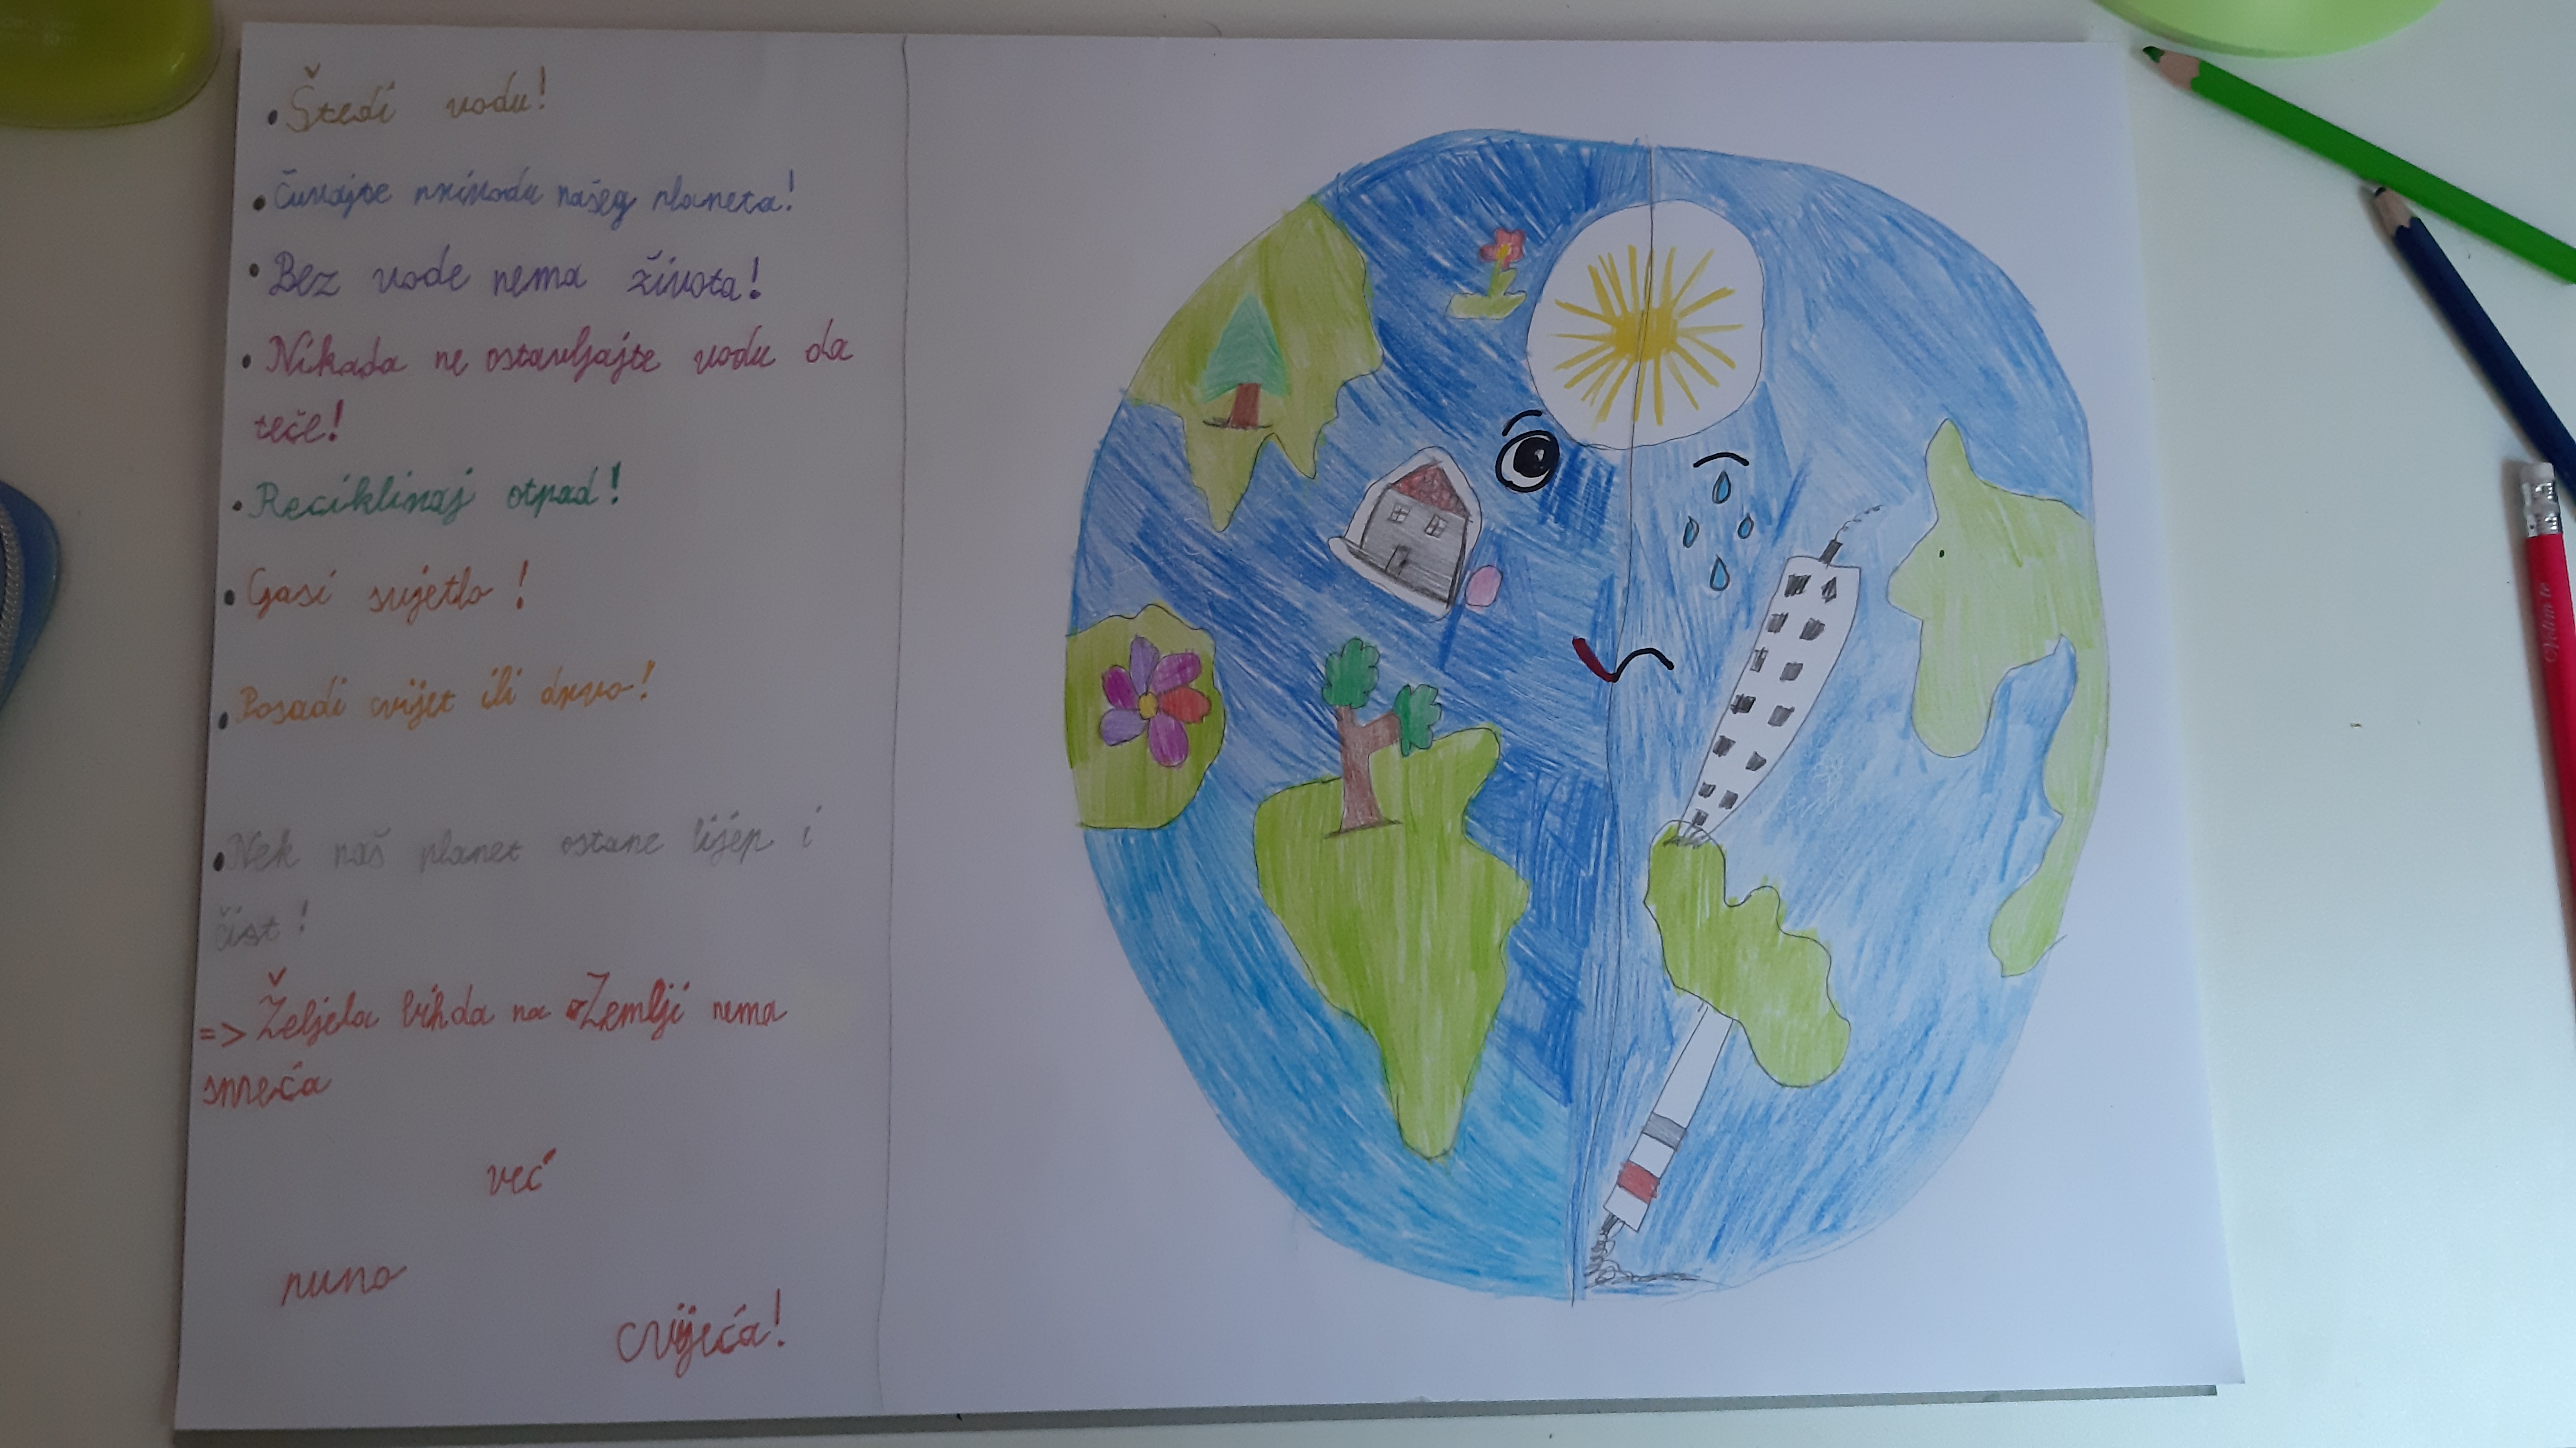 • Štedi vodu!
• Čuvajte prirodu našeg planeta!
• Bez vode nema života!
• Nikada ne ostavljajte vodu da
teče!
• Recikliraj otpad!
• Gasi svjetlo!
• Posadi cvijet ili drvo!
• Nek naš planet ostane lijep i
čist!
=> Željela bih da na Zemlji nema
smeća
već
puno
cvijeća!